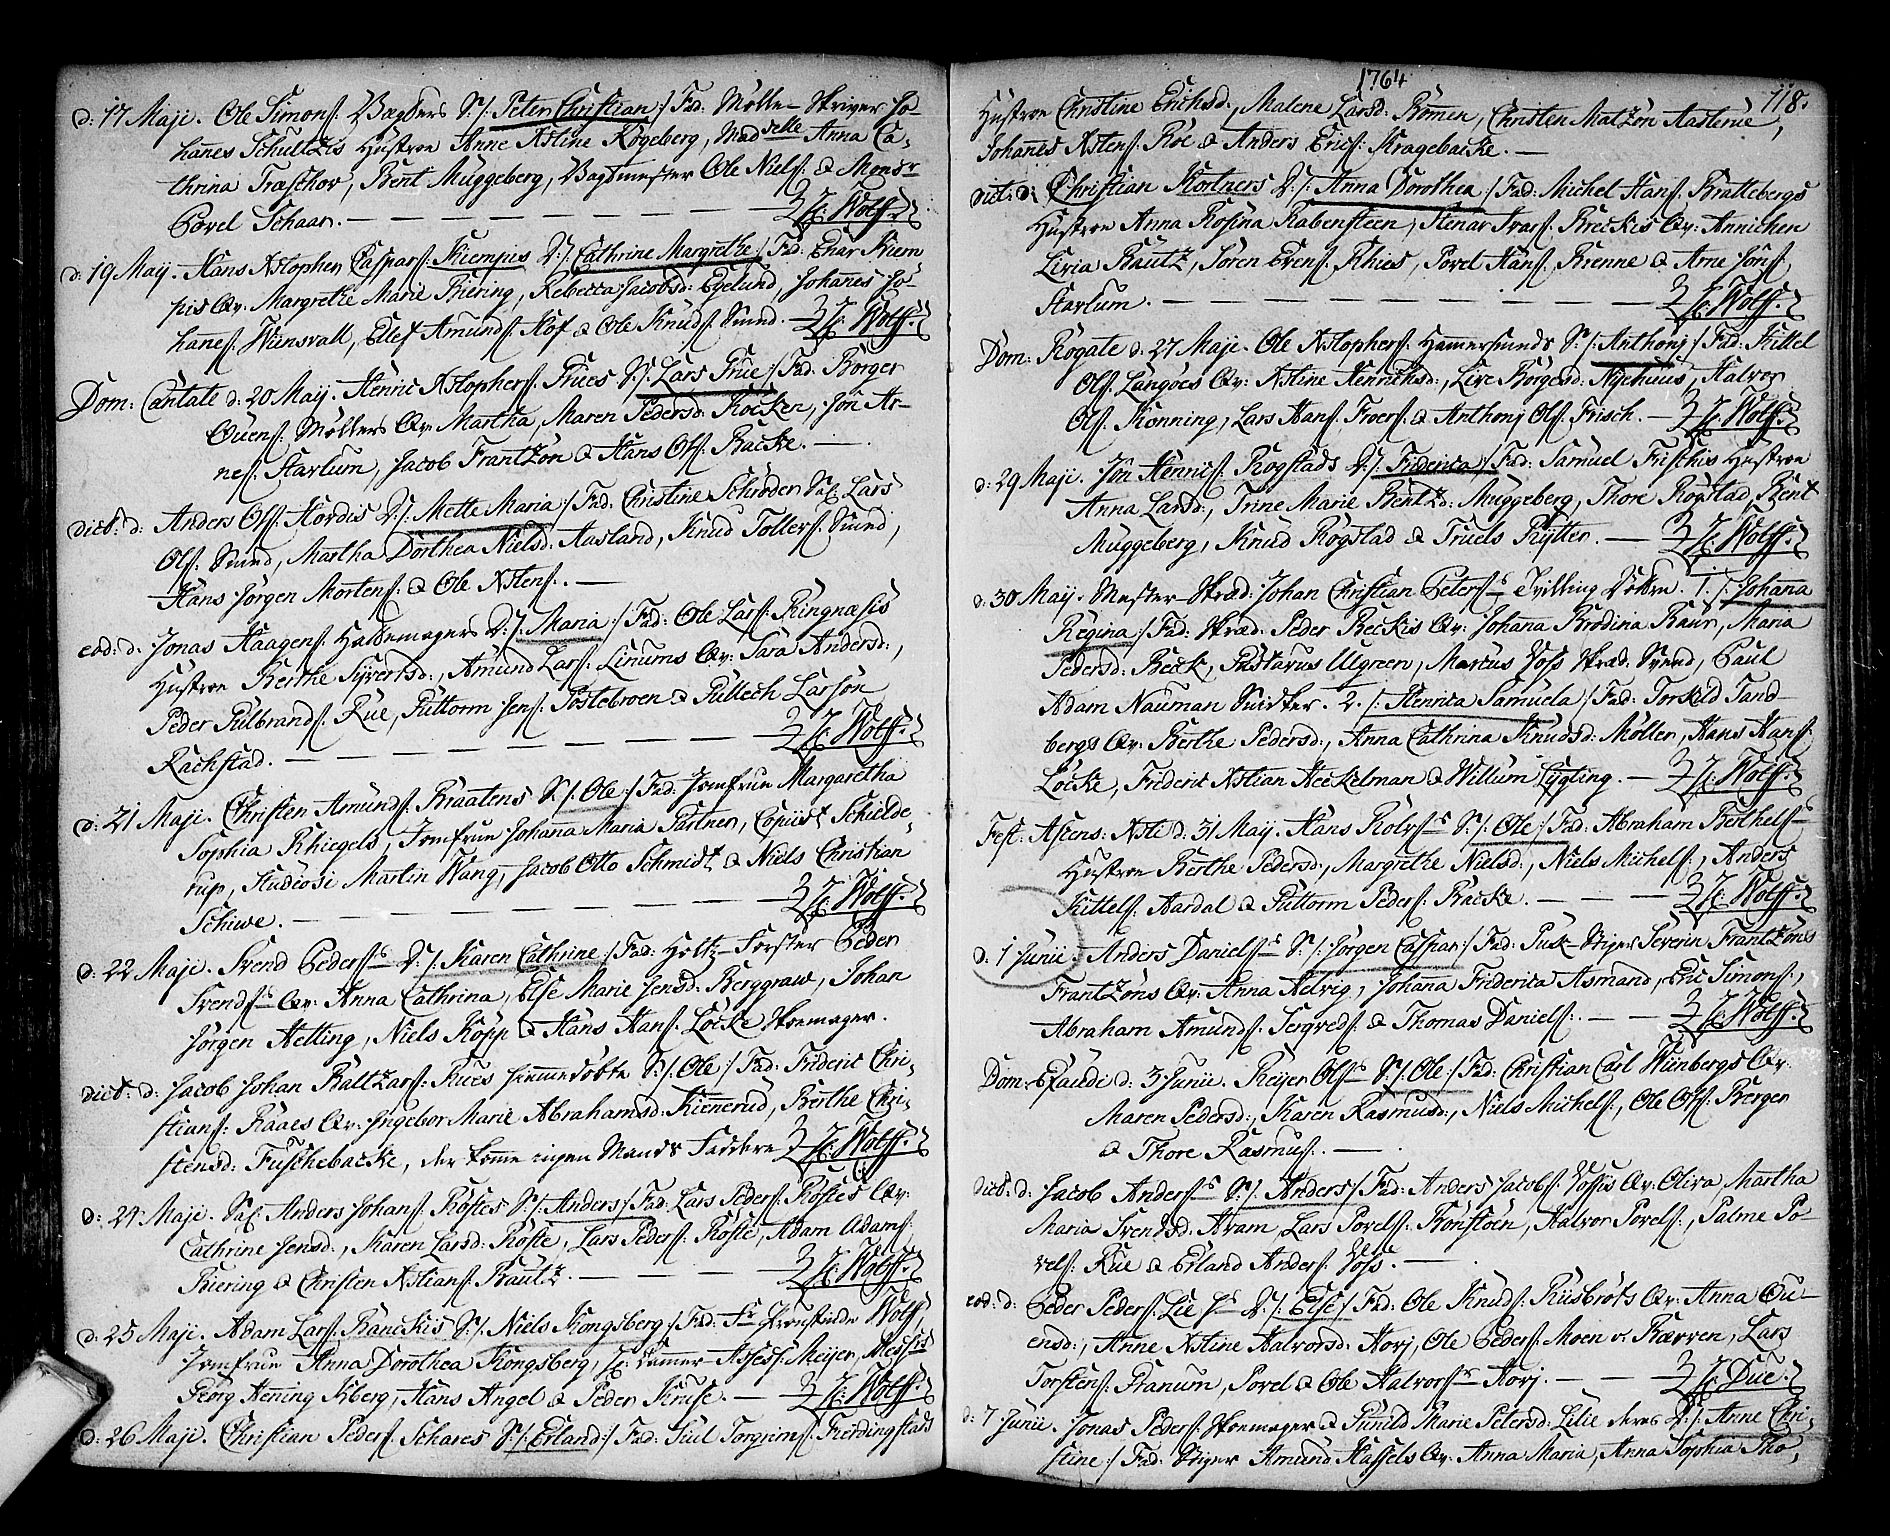 d: 17 Maji. Ole Simons: Vægders S:/: Peter Christian :/ Fad: Mølle-Skriver Jo-
hannes Schultzis Hustroe Anne Kstine Kogeberg, Madselle Anna Ca-
thrina Træschov, Bent Muggeberg, Vagtmester Ole Niels: & Monsr
Povel Schaar. H: Wolff.
d: 19 Maij. Hans Xstopher Caspars: Kiempis D:/: Cathrine Margrethe :/ Fad: Enar Kiem
pis Qv: Margrethe Marie Biering, Rebecca Jacobsd: Egelund, Johanes Jo-
hanes: Wiinsvall, Ellef Amunds: Hof & Ole Knuds: Sund. H: Wolff.
Dom: Cantate d: 20 Maij. Henric Xstophers: Trues S:/: Lars True :/ Fad: Borger
Ouens: Møllers Qv: Martha, Maren Pedersd: Kocken, Jon Ar-
nes: Starlum, Jacob Frantzøn & Hans Ols: Backe.
dict: d: Anders Ols: Hordis D:/: Mette Maria :/ Fad: Christine Schrøder Sal. Lars
Ols: Sund, Martha Dorthea Nielsd: Aasland, Knud Tollefs: Sund,
Hans Jørgen Mortens: & Ole Xstens:.
eod: d: Jonas Haagens: Hattemagers D:/: Maria :/ Fad: Ole Lars: Ringnæsis
Hustroe Berthe Sivertsd:, Amund Lars: Linums Qv: Sara Andersd:,
Peder Gulbrands: Rue, Guttorm Jens: Tostebroen & Gullech Larsøn
Rachstad. H: Wolff.
d: 21 Maji. Christen Amunds: Braatens S:/: Ole :/ Fad: Jomfrue Margaretha
Sophia Rhiegels, Jomfrue Johana Maria Gartner, Copiist Schielde-
rup, Studiosi Martin Wang, Jacob Otto Schmidt & Niels Christian
Schiwe. H: Wolff.
d: 22 Maji. Svend Peders: D:/: Karen Cathrine :/ Fad: Holtz-Førster Peder
Svends: Qv: Anna Cathrina, Else Marie Jensd: Berggraw, Johan
Jørgen Helting, Niels Kopp & Hans Hans: Locke Skoemager.
dict: d: Jacob Johan Baltzars: Rues hiemedøbte S:/: Ole :/ Fad: Frideric Chri-
stians: Raaes Qv: Ingebor Marie Abrahamsd: Kiennerud, Berthe Chri-
stensd: Fuschebacke, der kome ingen Mands Faddere H: Wolff.
d: 24 Maji. Sal. Anders Johans: Røstes S:/: Anders :/ Fad: Lars Peders: Røstes Qv:
Cathrine Jensd:, Karen Larsd: Røste, Lars Peders: Røste, Adam Adams:
Biering & Christen Xstians: Brautz. H: Wolff.
d: 25 Maji. Adam Lars: Banckis S:/: Niels Kongsberg :/ Fad: Fr Provstinde Wolff,
Jomfrue Anna Dorothea Kongsberg, Hr: Kammer Assess: Meijer, Messrs
Georg Hening Isberg, Hans Angel & Peder Kruse. H: Wolff.
d: 26 Maji. Christian Peders: Schares S:/: Erland :/ Fad: Siul Torgrims: Fierdingstads
1764
118.
Hustroe Christine Erichsd:, Malene Larsd: Bømen, Christen Matzøn Aasterue,
Johanes Xstens: Roe & Anders Erics: Kragebacke.
dict: d: Christian Kortners D:/: Anna Dorothea :/ Fad: Michel Hans: Brattebergs
Hustroe Anna Rosina Rabensteen, Stenar Ivars: Breckis Qv: Annichen
Livia Bautz, Søren Evens: Rhies, Povel Hans: Brenne & Arne Jons:
Starlum. H: Wolff.
Dom: Rogate d: 27 Maji. Ole Xstophers: Hamersunds S:/: Anthonj :/ Fad: Kittel
Ols: Langoes Qv: Xstine Henrichsd:, Live Børgesd: Nyehuus, Halvor
Ols: Konning, Lars Hans: Froer & Anthonj Ols: Frisch. H: Wolff.
d: 29 Maji. Jon Henrics: Rogstads D:/: Friderica :/ Fad: Samuel Frischis Hustroe
Anna Larsd:, Trine Marie Bentzd: Muggeberg, Thore Rogstad, Bent
Muggeberg, Knud Rogstad & Truels Rytter. H: Wolff.
d: 30 Maij. Mester-Skræd: Johan Christian Peters: Tvilling Døttre. 1. /: Johana
Regina :/ Fad: Skræd: Peder Beckis Qv: Johana Brodina Baur, Maria
Pedersd: Beck, Gustavus Ulgreen, Marcus Foss Skræd: Svend, Paul
Adam Nauman Snidker. 2. /: Henrica Samuela :/ Fad: Torkild Tand
bergs Qv: Berthe Pedersd:, Anna Cathrina Knudsd: Møller, Hans Hans:
Locke, Frideric Xstian Heckelman & Willum Cygting. H: Wolff.
Fest: Ascens: Xsti d: 31 Maij. Hans Rolvs: S:/: Ole :/ Fad: Abraham Berthels:
Hustroe Berthe Pedersd:, Margrethe Nielsd:, Niels Michels:, Anders
Kittels: Aardal & Guttorm Peders: Backe. H: Wolff.
d: 1 Junii. Anders Daniels: S:/: Jørgen Caspar :/ Fad: Puk-Stiger Severin Frantzøns
Frantzøns Qv: Anna Helvig, Johana Friderica Asmand, Eric Simons:,
Abraham Amunds: Tergreds: & Thomas Daniels:. H: Wolff.
Dom: Exaudi d: 3 Junii. Reijer Ols: S:/: Ole :/ Fad: Christian Carl Wiinbergs Qv:
Maren Pedersd:, Karen Rasmusd:, Niels Michels:, Ole Ols: Berger
& Thore Rasmus:.
dict: d: Jacob Anders: S:/: Anders :/ Fad: Anders Jacobs: Fossis Qv: Oliva, Martha
Maria Svendsd: Aram, Lars Povels: Bonstøen, Halvor Povels:, Palme Po-
vels: Rue & Erland Anders: Foss.
eod: d: Peder Peders: Lie D:/: Else :/ Fad: Ole Knuds: Ruusbrots Qv: Anna Ou-
ensd:, Anne Xstine Halvorsd: Horj, Ole Peders: Moen v. Kærven, Lars
Torstens: Granum, Povel & Ole Halvors: Horj. H: Due.
d: 7 Junii. Jonas Peders: Skoemager & Gunild Marie Petersd: Lilie deres D:/: Anne Chri-
stine :/ Fad: Stiger Amund Hassels Qv: Anna Maria, Anna Sophia Tho-